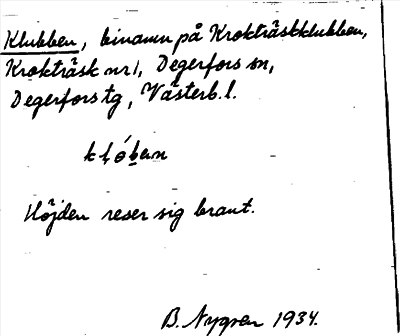 Klubben, binamn på Krokträskklubben,
Krokträsk nr 1, Degerfors sn,
Degerfors tg, Västerb. l.
Höjden reser sig brant.
B. Nygren 1934.